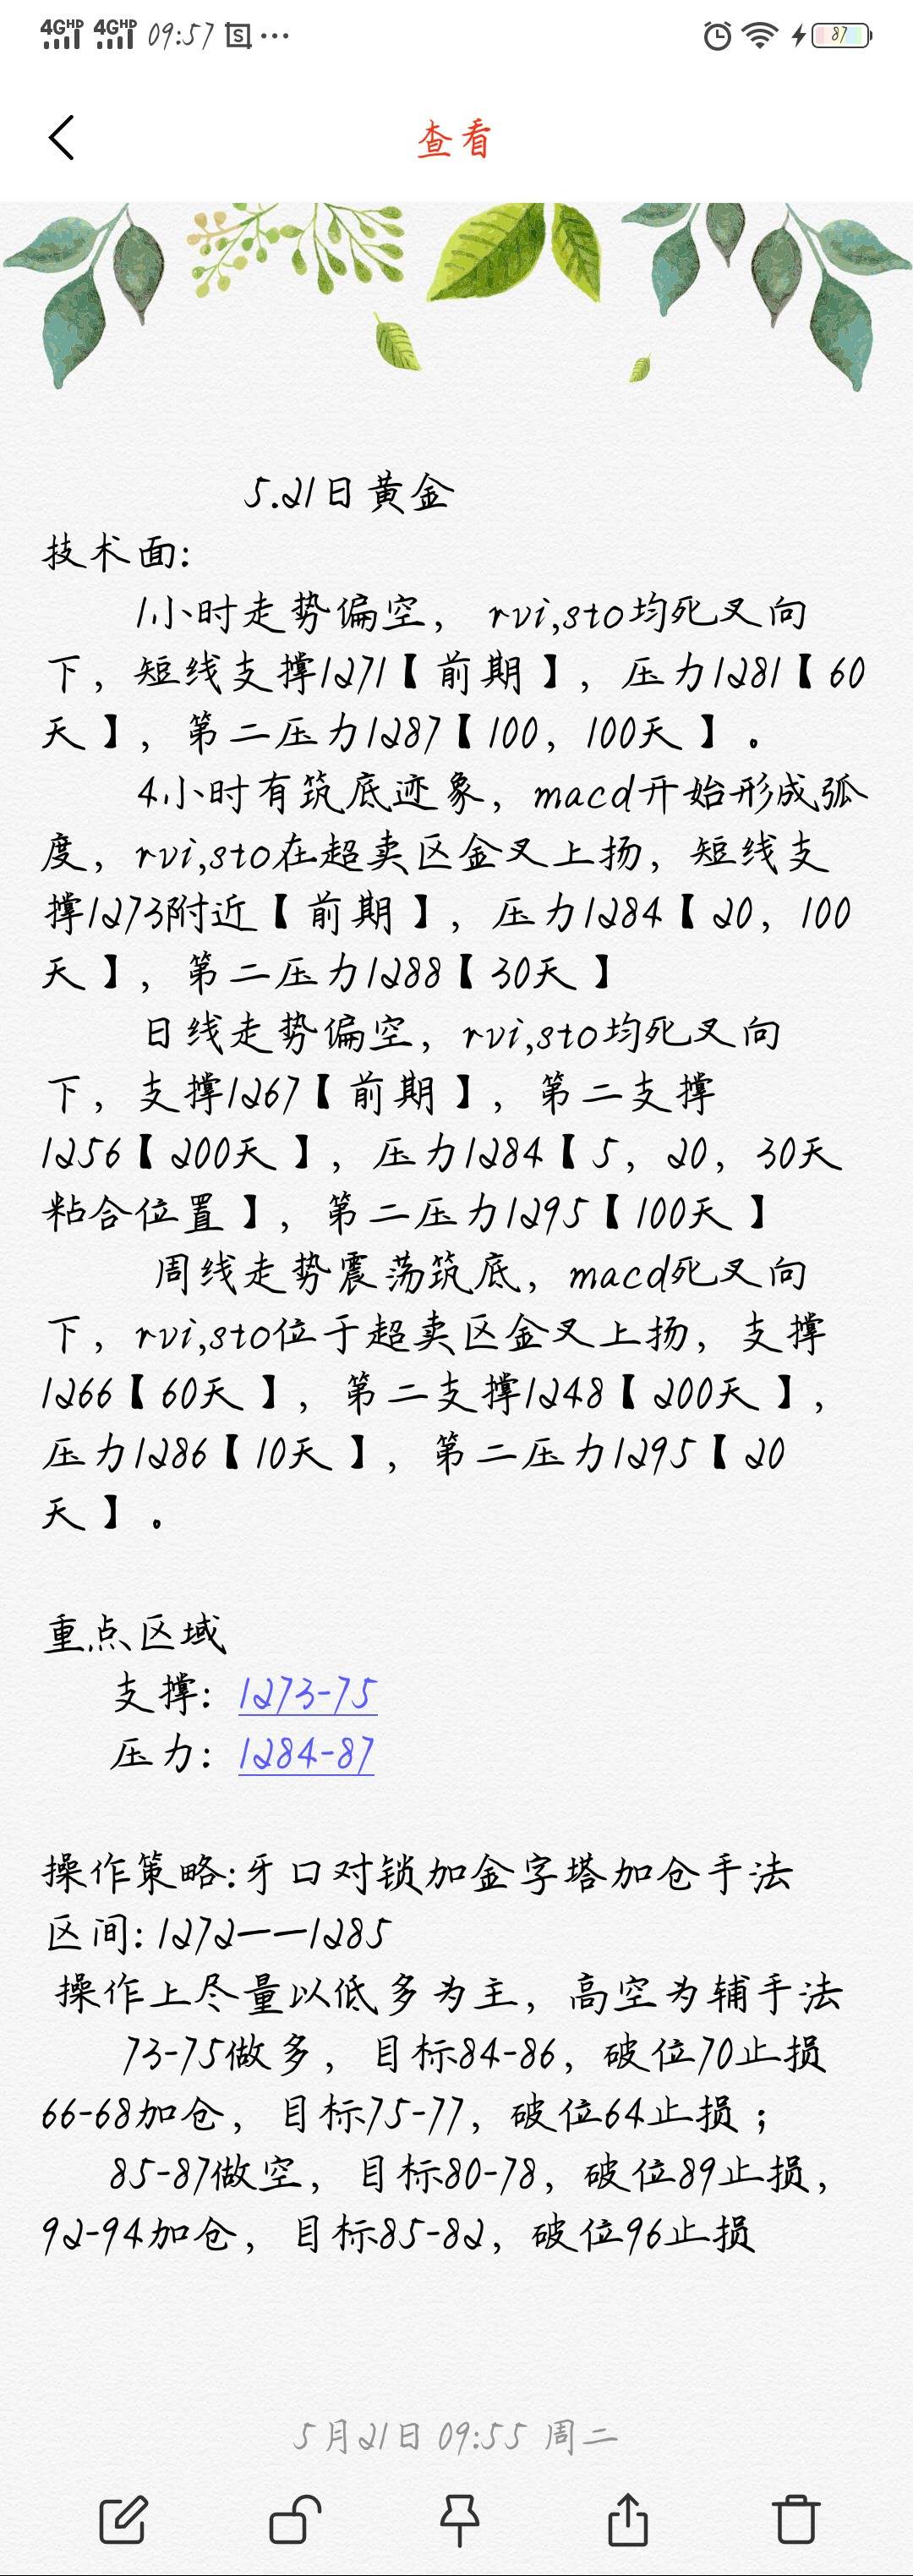 4GHD 4GHD 09:57 S ... 87
查看
5.21日黄金
技术面:
1小时走势偏空， rvi,sto均死叉向
下，短线支撑1271【前期】，压力1281【60
天】，第二压力1287【100，100天】。
4小时有筑底迹象，macd开始形成弧
度，rvi,sto在超卖区金叉上扬，短线支
撑1273附近【前期】，压力1284【20，100
天】，第二压力1288【30天】
日线走势偏空，rvi,sto均死叉向
下，支撑1267【前期】，第二支撑
1256【200天】，压力1284【5，20，30天
粘合位置】，第二压力1295【100天】
周线走势震荡筑底，macd死叉向
下，rvi,sto位于超卖区金叉上扬，支撑
1266【60天】，第二支撑1248【200天】，
压力1286【10天】，第二压力1295【20
天】。
重点区域
支撑：1273-75
压力：1284-87
操作策略:牙口对锁加金字塔加仓手法
区间:1272——1285
操作上尽量以低多为主，高空为辅手法
73-75做多，目标84-86，破位70止损
66-68加仓，目标75-77，破位64止损；
85-87做空，目标80-78，破位89止损，
92-94加仓，目标85-82，破位96止损
5月21日 09:55 周二